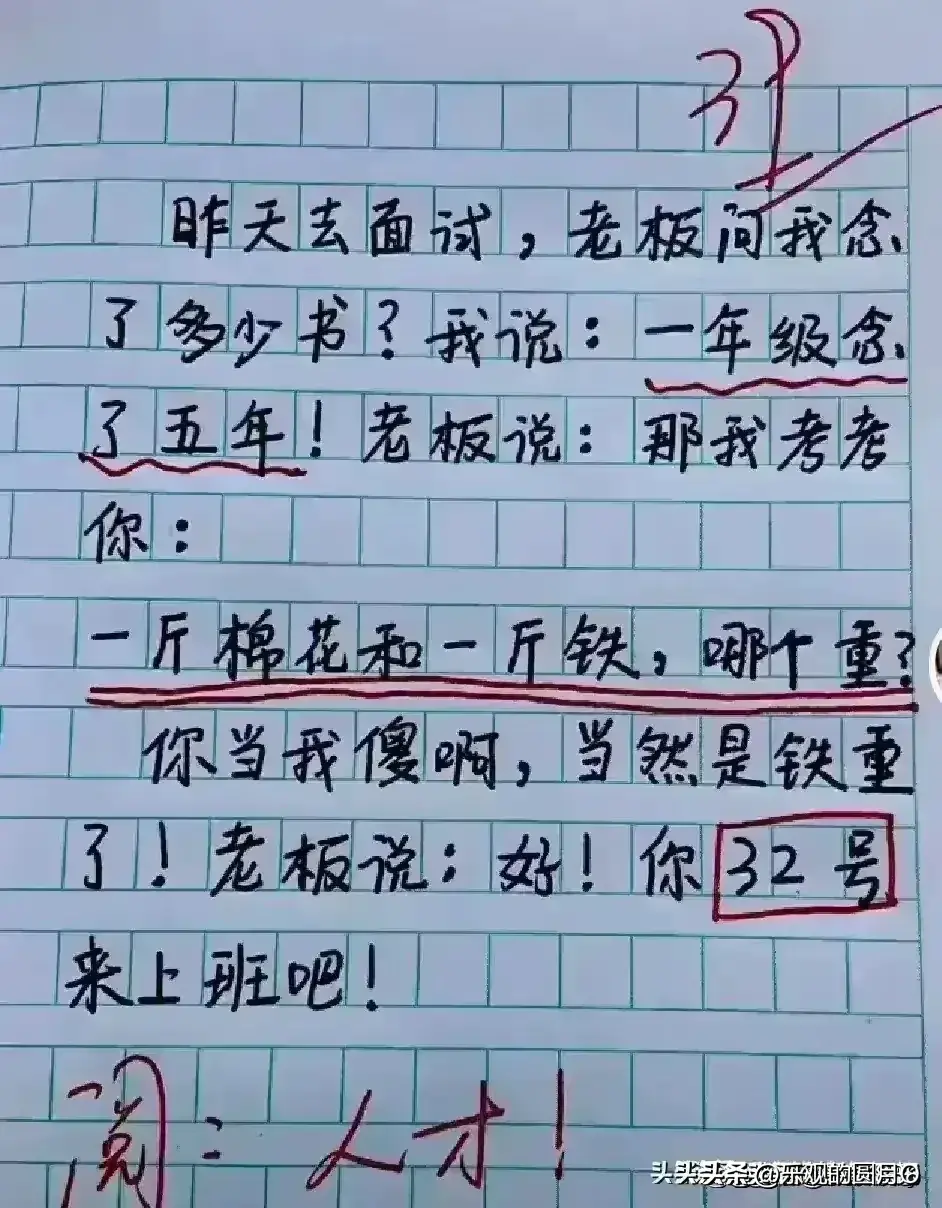 昨天去面试，老板问我念
了多少书？我说：一年级念
了五年！老板说：那我考考
你：
一斤棉花和一斤铁，哪个重？
你当我傻啊，当然是铁重
了！老板说：好！你32号
来上班吧！
阅：人才！
头条 @乐观的圆月